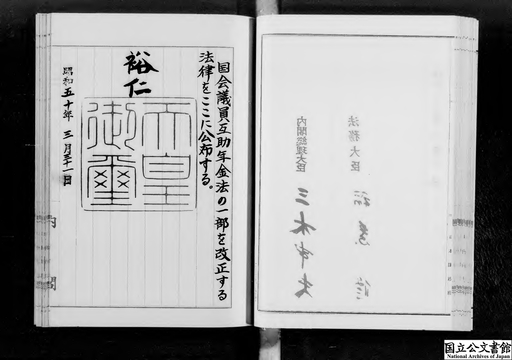 法務大臣
内閣総理大臣 三木武夫
国会議員互助年金法の一部を改正する
法律をここに公布する。
裕仁
天皇
御璽
昭和五十年三月三十一日
内閣
国立公文書館
National Archives of Japan